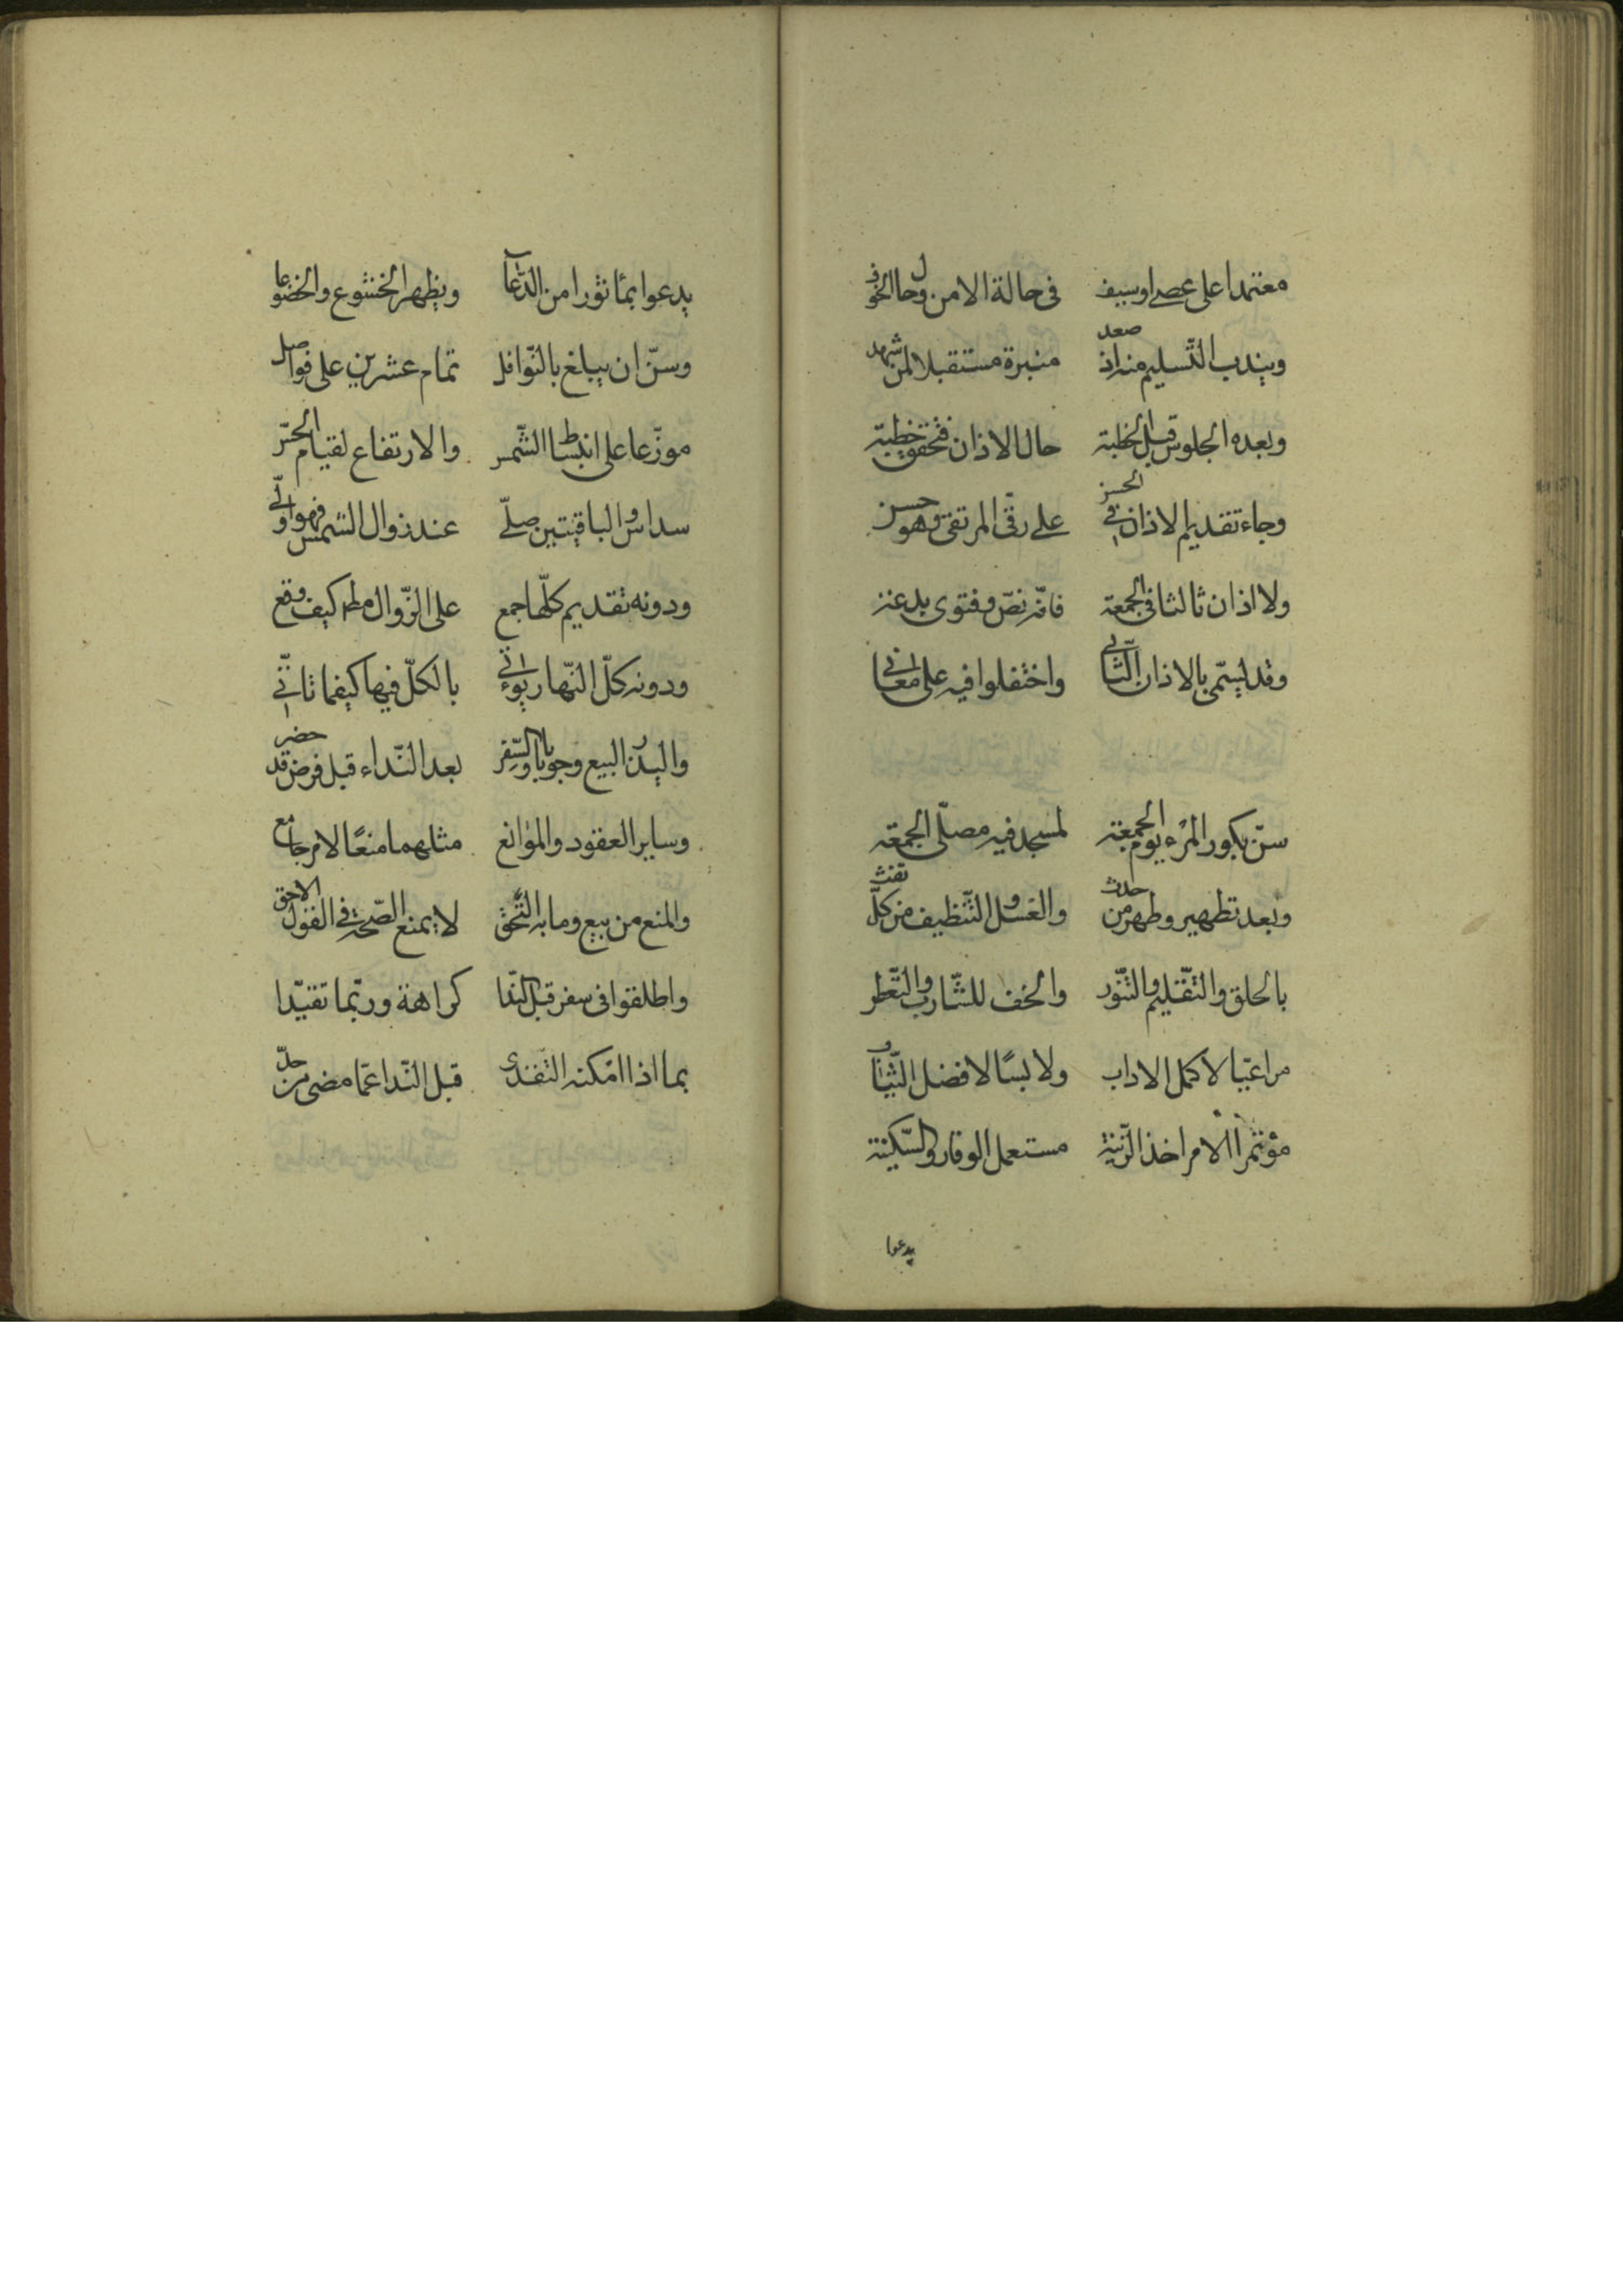 معتمدا على عصى او سيف في حالة الامن وحال الخوف
ويندب التسليم منه اذ صعد منبره مستقبلا لمن شهد
وبعده الجلوس قبل الخطبة حال الاذان فتحقق خطبته
وجاء تقديم الاذان في الحسن على رقي المرتقى وهو حسن
ولا اذان ثالثا في الجمعة فانّه نصّ وفتوى بدعة
وقد يسمّى بالاذان الثّاني واختلفوا فيه على معاني
سنّ بكور المرء يوم الجمعة لمسجد فيه مصلّى الجمعة
وبعد تطهير وطهر من حدث والغسل والتّنظيف من كلّ تفث
بالحلق والتّقليم والتّنوّر والحف للشّارب والتّعطر
مراعيا لاكمل الاداب ولابسًا لافضل الثّياب
مؤتمرا لامر اخذ الزّينة مستعمل الوقار والسّكينة
يدعوا
يدعوا بمأثور من الدّعاء ويظهر الخشوع والخضوعا
وسنّ ان يبلغ بالنّوافل تمام عشرين على فواصل
موزّعا على انبساط الشّمس والارتفاع لقيام الحرّ
سداس والباقيتين صلّى عند زوال الشمس فهو اولى
ودونه تقديم كلّها جمع على الزّوال كيف وقع
ودونه كلّ النّهار يؤتى بالكلّ فيها كيفما تأتّى
البيع وجوبا والسّفر بعد النّداء قبل فرض قد حضر
وساير العقود والموانع مثلهما منعًا لامر جامع
والمنع من بيع وما به التحق لا يمنع الصّحّة في القول الاحق
واطلقوا في سفر قبل النّدا كراهة وربّما تقيّدا
بما اذا امكنه قبل النّدا عمّا مضى من حلّ